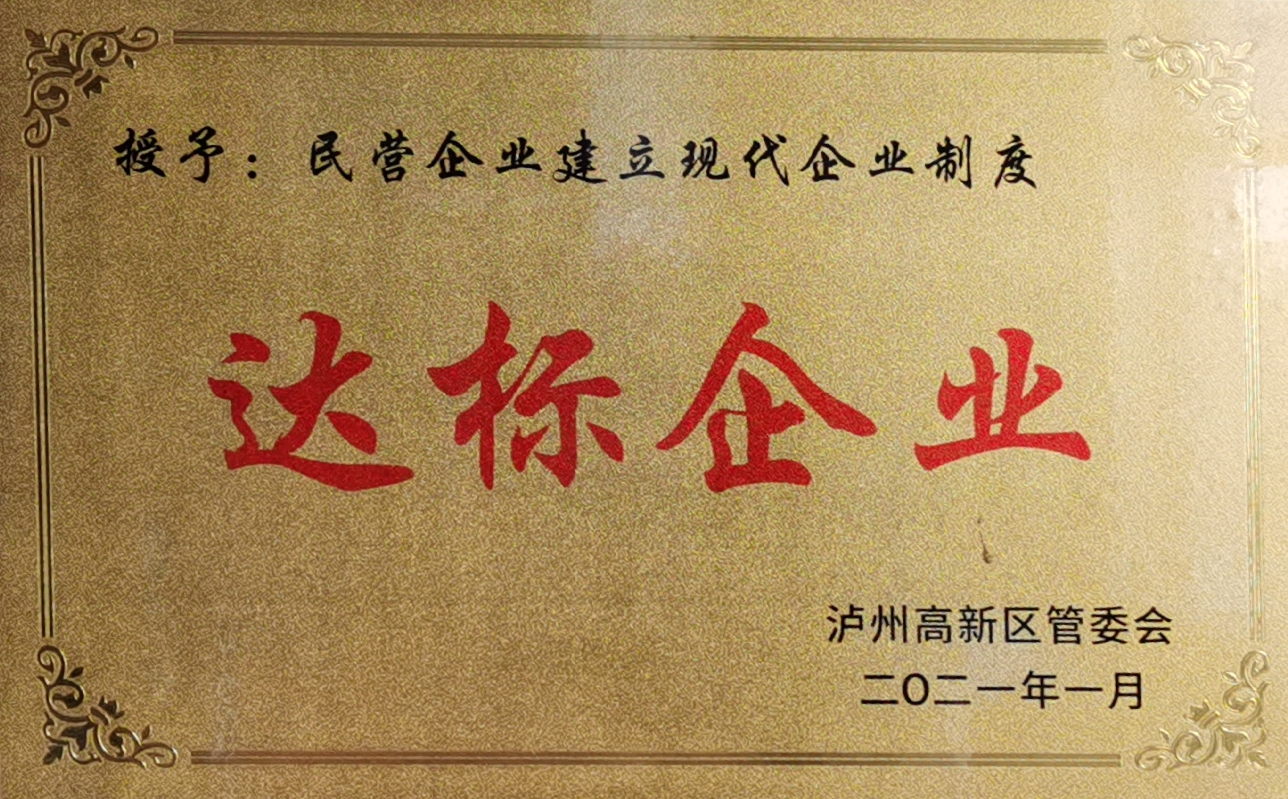 授予：民营企业建立现代企业制度
达标企业
泸州高新区管委会
二〇二一年一月